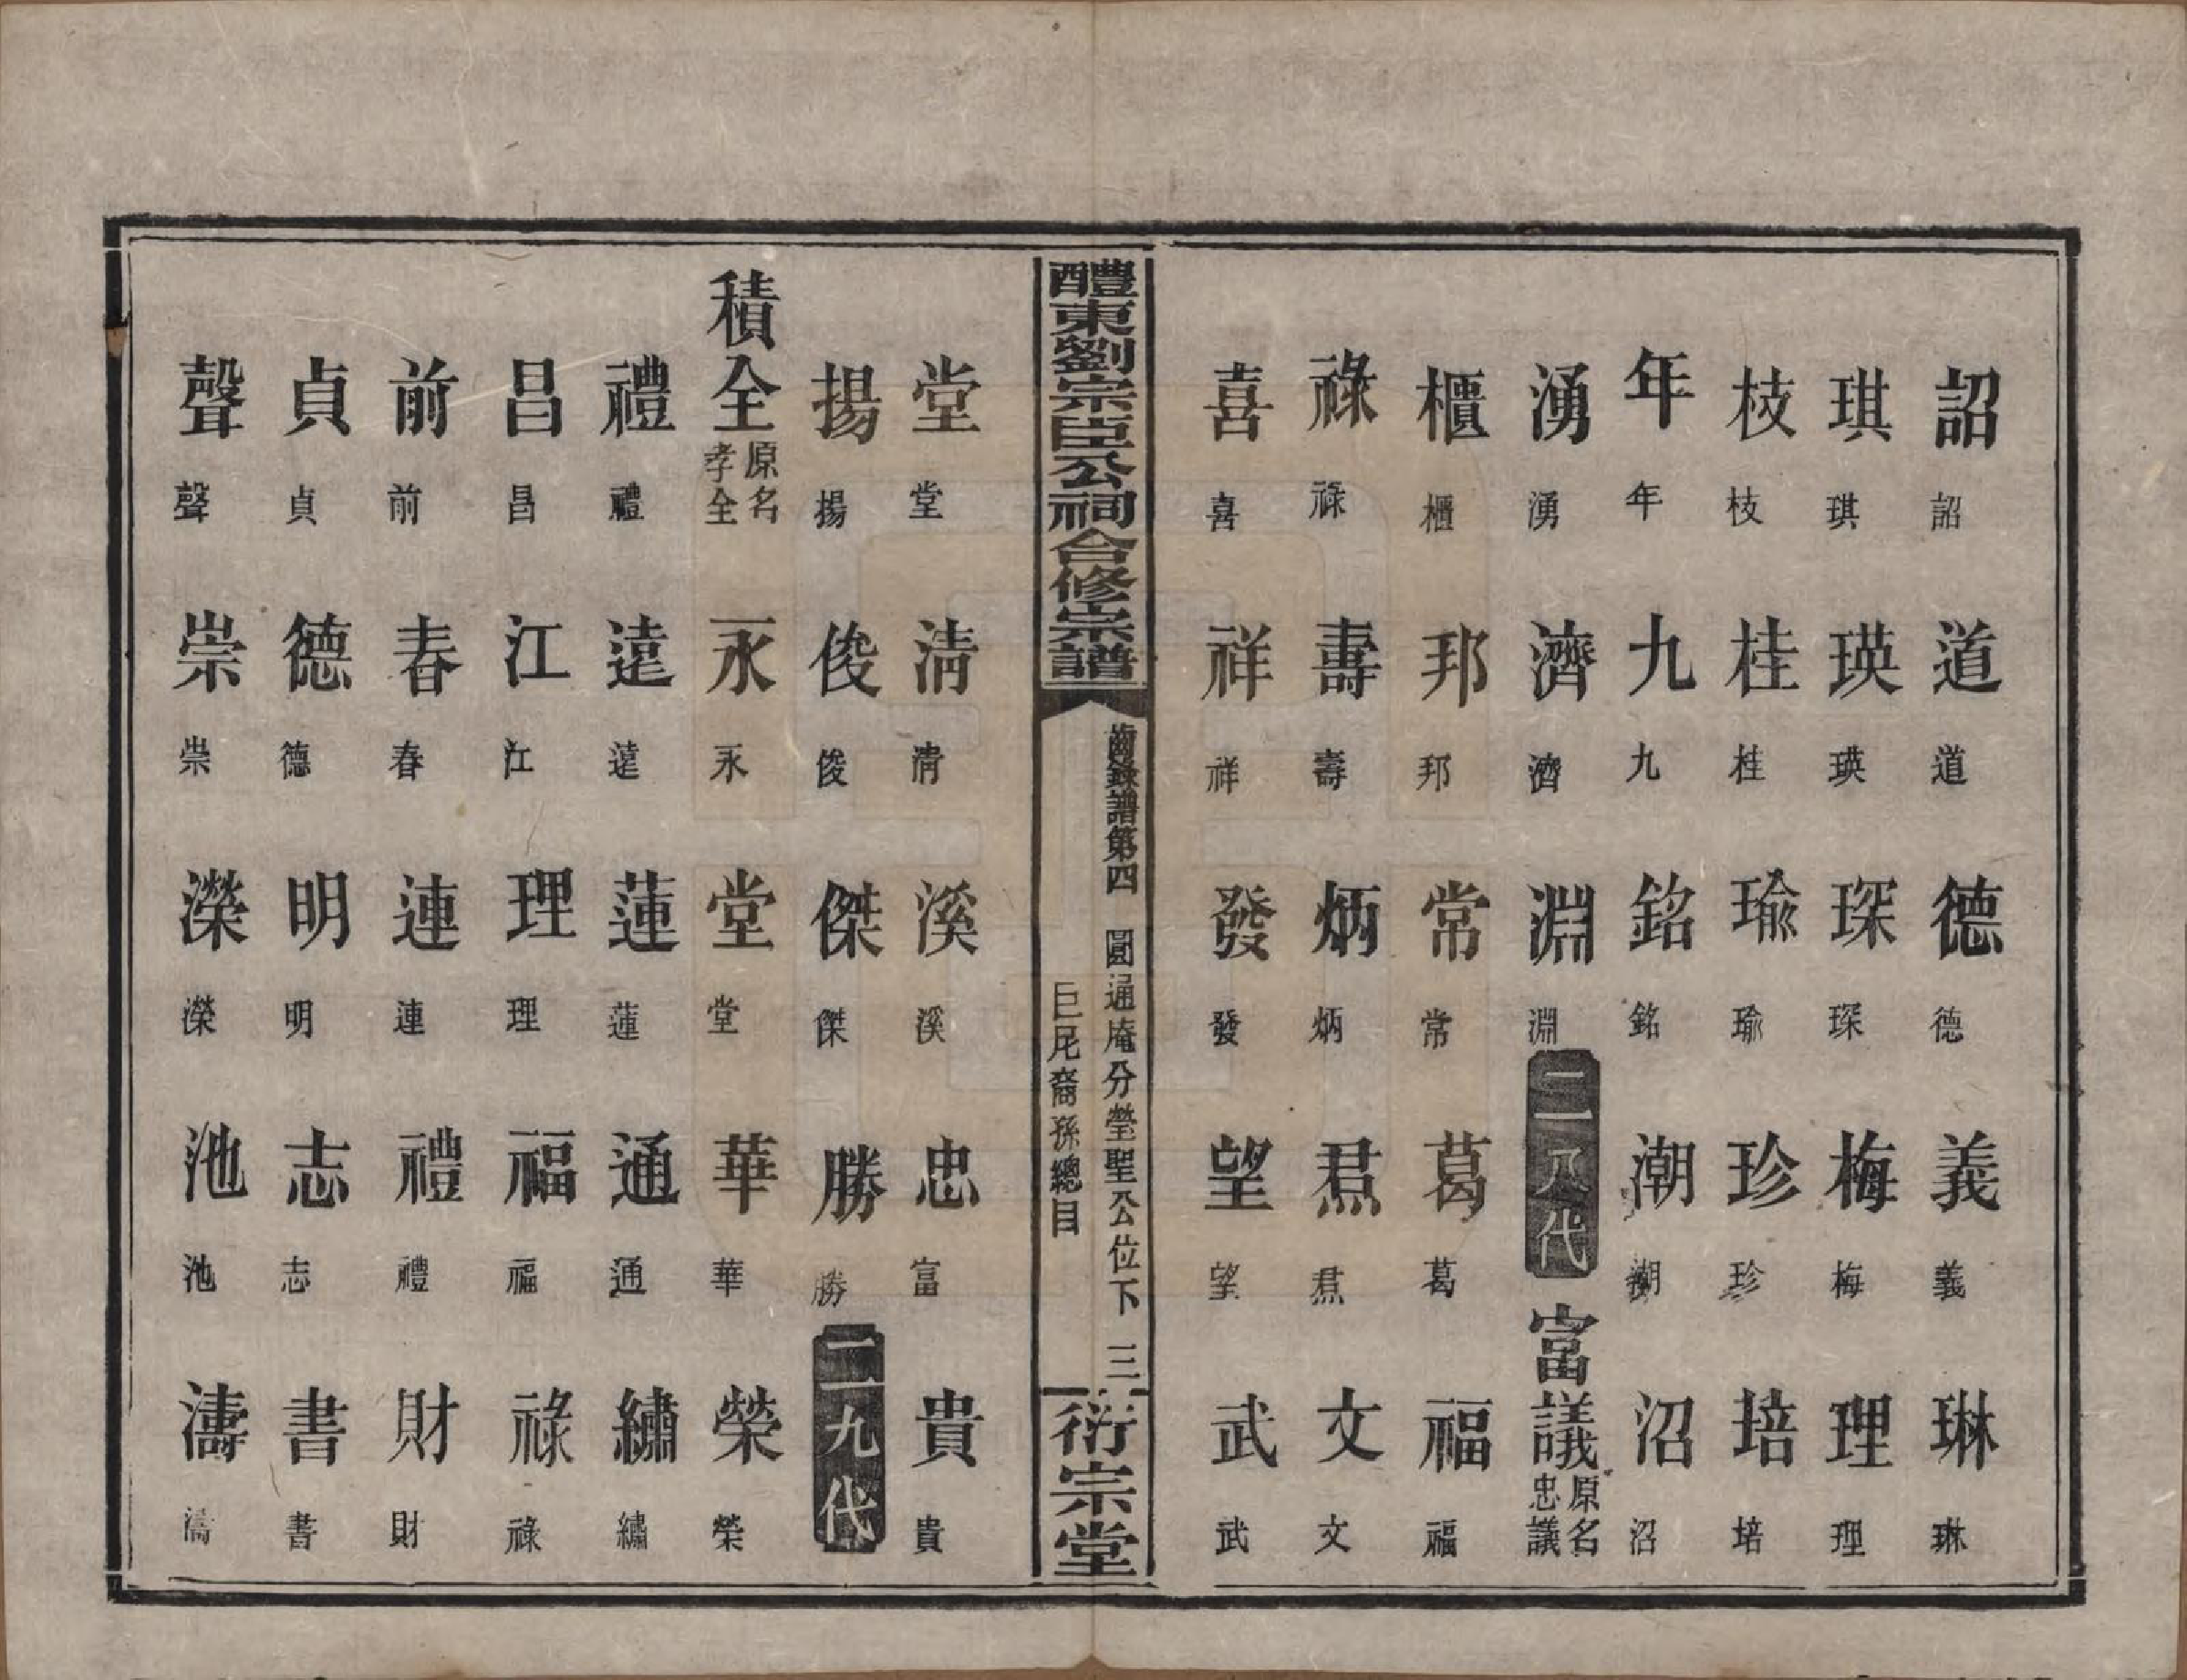 詔詔 道道 德德 義義 琳琳
琪琪 瑛瑛 琛琛 梅梅 理理
枝枝 桂桂 瑜瑜 珍珍 培培
年年 九九 銘銘 潮潮 沼沼
湧湧 濟濟 淵淵 二八代 富議原名忠議
櫃櫃 邦邦 常常 葛葛 福福
祿祿 壽壽 炳炳 焄焄 文文
喜喜 祥祥 發發 望望 武武
醴東劉宗臣公祠合修宗譜
齒錄譜第四 圓通庵分瑩聖公位下 三
巨尾裔孫總目
衍宗堂
堂堂 清清 溪溪 忠富 貴貴
揚揚 俊俊 傑傑 勝勝 二九代
積全原名孝全 永永 堂堂 華華 榮榮
禮禮 遠遠 蓮蓮 通通 繡繡
昌昌 江江 理理 福福 祿祿
前前 春春 連連 禮禮 財財
貞貞 德德 明明 志志 書書
聲聲 崇崇 濚濚 池池 濤濤